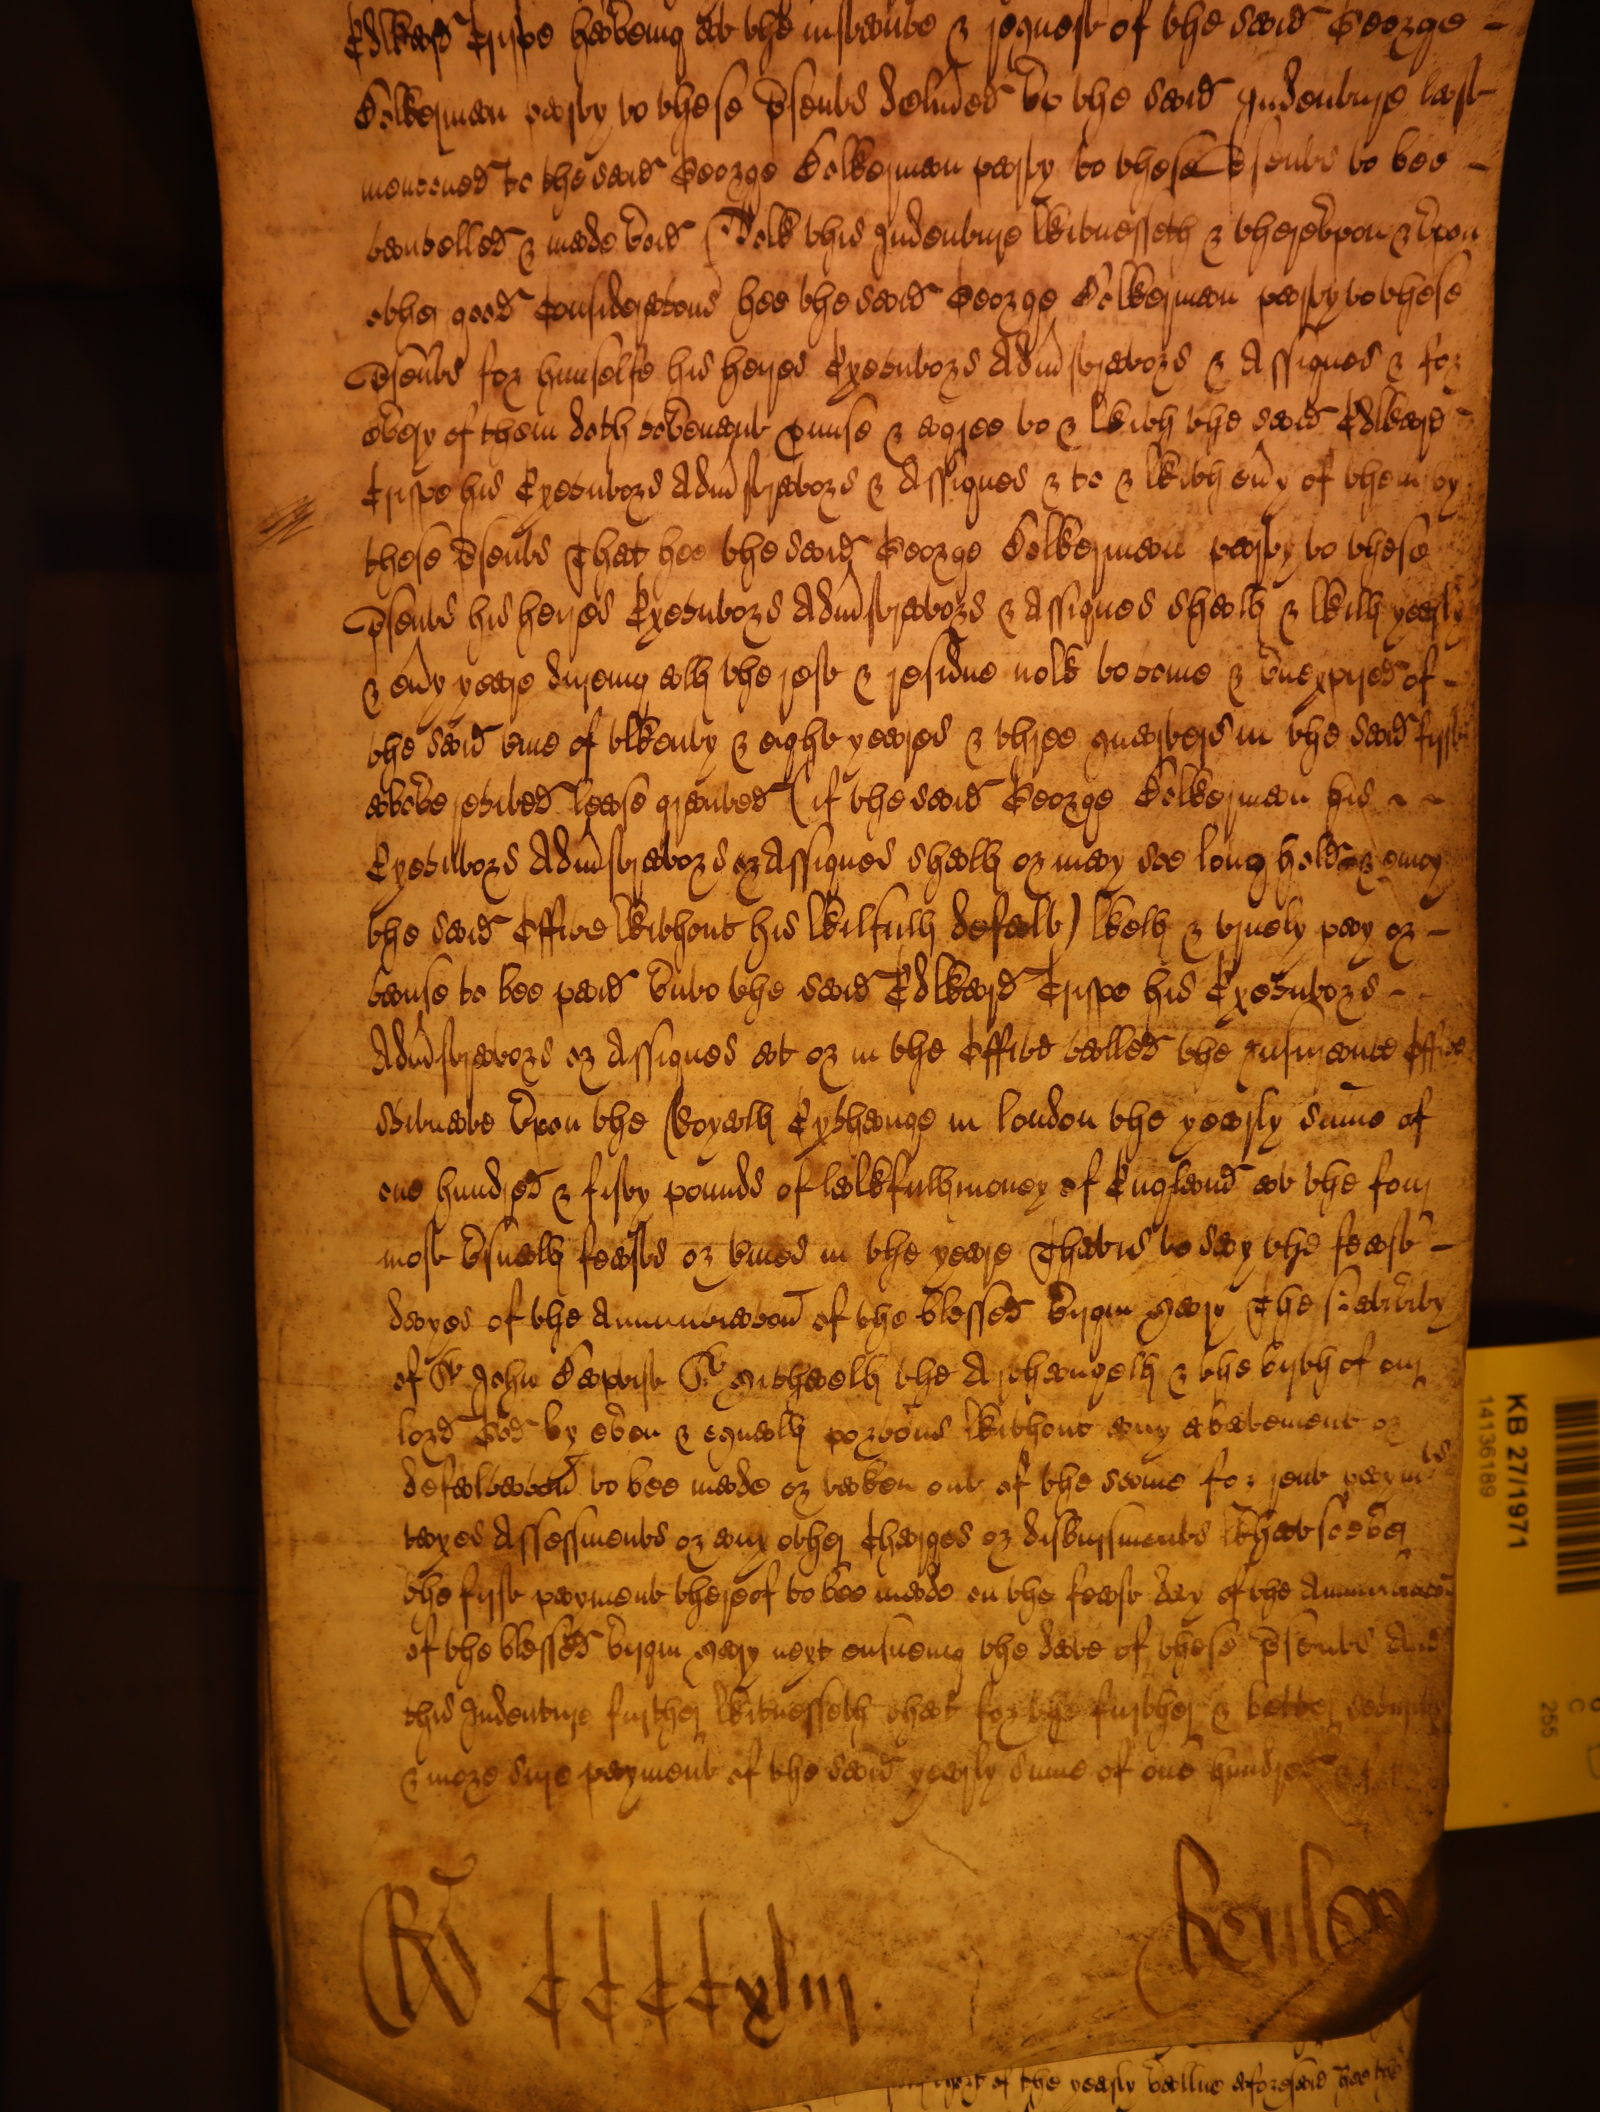 Edward Crispe haveing att the instance & request of the said George -
Cockerman party to these psents delived up the said Indenture last
menconed to the said George Cockerman party to these psents to bee -
cancelled & made void Now this Indenture Witnesseth & thereupon & upon
other good consideracons hee the said George Cockerman party to these
psents for himselfe his heires Executors Admistrators & Assignes & for
every of them doth covenant pmise & agree to & with the said Edward
Crispe his Executors Admistrators & Assignes & to & with evy of them by
these psents That hee the said George Cockerman party to these
psents his heires Executors Admistrators & Assignes shall & will yearly
& evy yeare dureing all the rest & residue now to come & unexpired of -
the said time of twenty & eight yeares & three quarters in the said first
above recited lease granted (if the said George Cockerman his
Executors Admistrators or Assignes shall or may soe long hold & enioy
the said Office without his wilfull default) well & truely pay or -
cause to bee paid unto the said Edward Crispe his Executors -
Admistrators or Assignes at or in the Office called the Insurance Office
scituate upon the Royall Exchange in London the yearly sume of
one hundred & fifty pounds of lawfull money of England att the four
most usuall feasts or times in the yeare That is to say the feast -
dayes of the Annunciacon of the blessed virgin Mary The Nativity
of St John Baptist St Michaell the Archangell & the birth of our
lord God by even & equall porcons without any abatement or
defalcacon to bee made or taken out of the same for rent paymts
taxes Assessments or any other charges or disbursments whatsoever
the first payment thereof to bee made on the feast day of the Annunciacon
of the blessed virgin Mary next ensueing the date of these psents And
this Indenture further witnesseth that for the further & better security
& more sure payment of the said yearly sume of one hundred &
Ro ccccxliij.
Henslow
of the yearly vallue aforesaid hee the
KB 27/1971
14136189
255
C